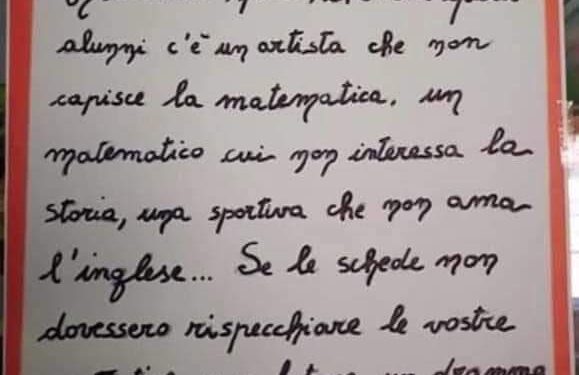 alunni c'è un artista che non
capisce la matematica, un
matematico cui non interessa la
storia, una sportiva che non ama
l'inglese... Se le schede non
dovessero rispecchiare le vostre
un dramma